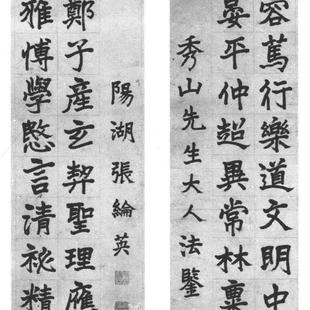 容篤行樂道文明中
晏平仲超異常林
秀山先生大人法鑒
雅博學慜言清祕精
鄭子產玄契聖理應
陽湖張綸英